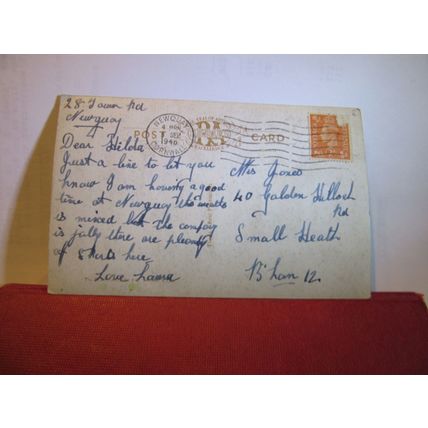 28 Tower Rd
Newquay
NEWQUAY
CORNWALL
4 PM
SEP
1946
POST CARD
Dear Hilda
Just a line to let you
know I am having a good
time at Newquay the
is mixed but the company
is jolly there are plenty
of here
Love Laura
Mis Jones
40 Galdon Hilloch
Rd
Small Heath
B'han 12.